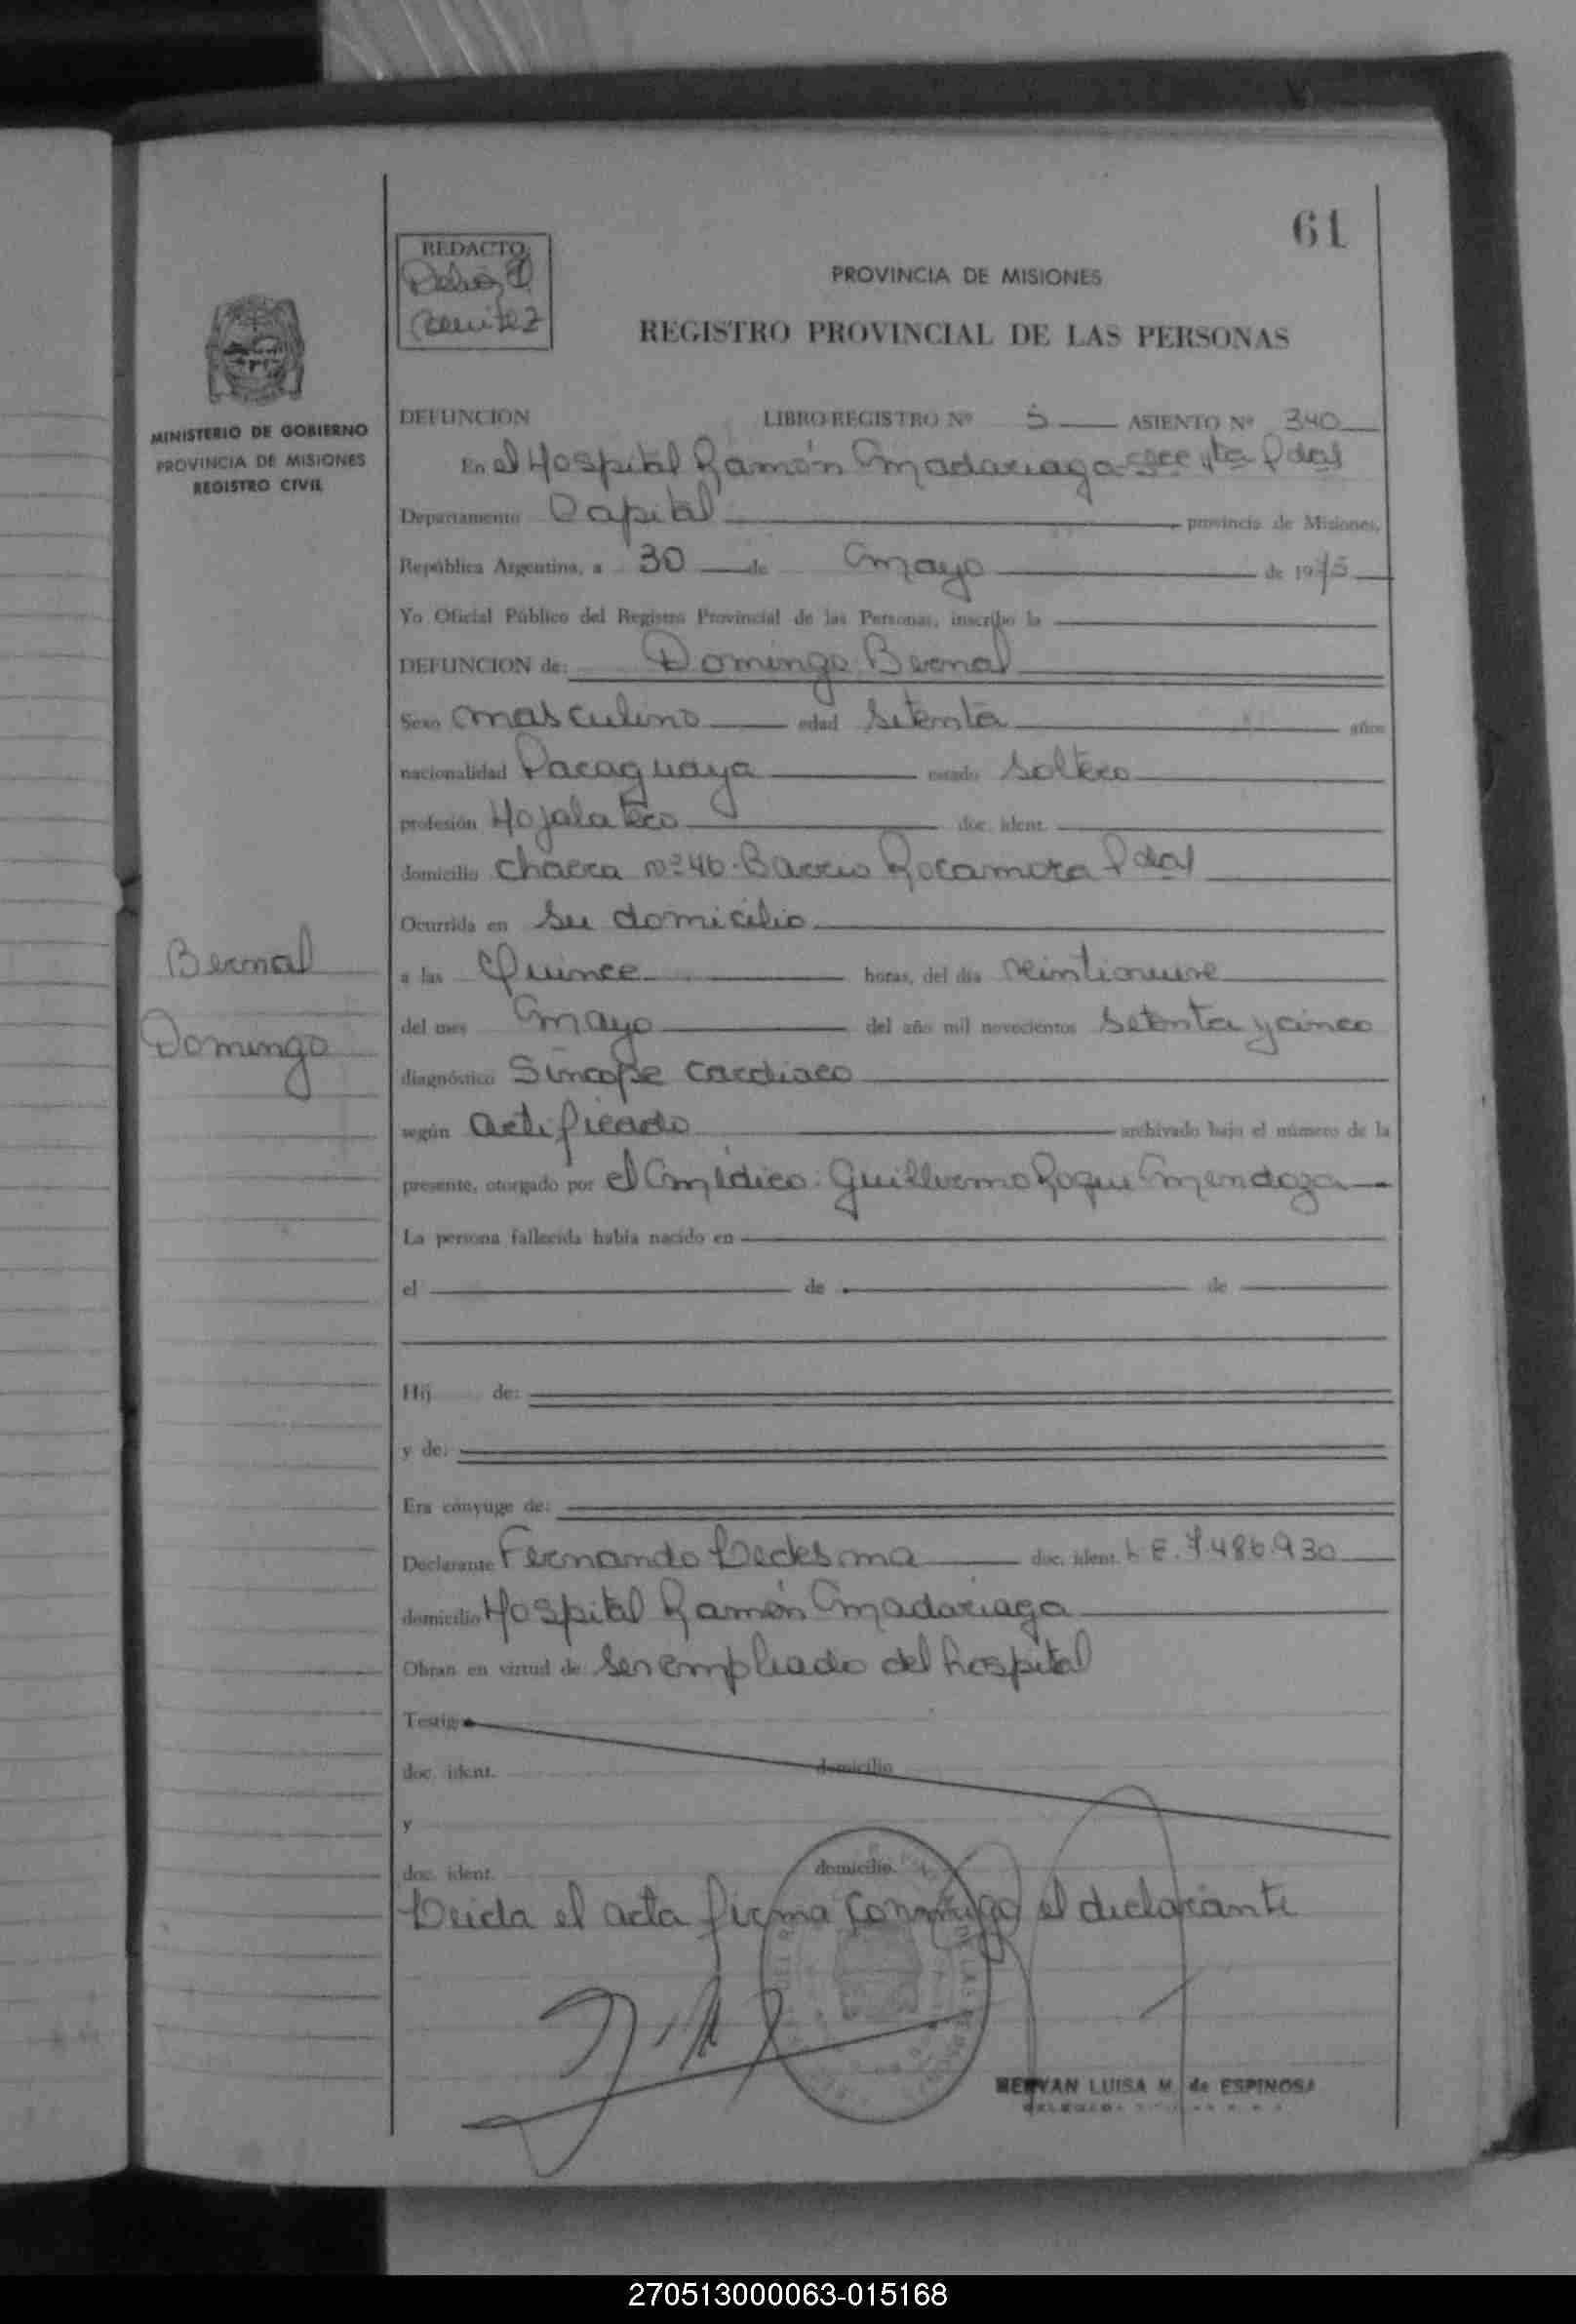 61
REDACTO
Benitez
PROVINCIA DE MISIONES
REGISTRO PROVINCIAL DE LAS PERSONAS
MINISTERIO DE GOBIERNO
PROVINCIA DE MISIONES
REGISTRO CIVIL
DEFUNCION LIBRO REGISTRO Nº 5 ASIENTO Nº 340
En el Hospital Ramón Madariaga Pdas
Departamento Capital provincia de Misiones,
República Argentina, a 30 de Mayo de 1975
Yo Oficial Público del Registro Provincial de las Personas, inscribo la
DEFUNCION de: Domingo Bernal
Sexo Masculino edad Setenta años
nacionalidad Paraguaya estado Soltero
profesión Hojalatero doc. ident.
domicilio Chacra nº 46 - Barrio Rocamora Pdas
Ocurrida en Su domicilio
a las Quince horas, del día veintinueve
del mes Mayo del año mil novecientos Setenta y cinco
diagnóstico Sincope Cardiaco
según Certificado archivado bajo el número de la
presente, otorgado por el Médico: Guillermo Roque Mendoza
La persona fallecida había nacido en
el de de
Hij de:
y de:
Era cónyuge de:
Declarante Fernando Ledesma doc. ident. L E. 7.486.930
domicilio Hospital Ramón Madariaga
Obran en virtud de Ser empleado del hospital
Testigos
doc. ident. domicilio
y
doc. ident. domicilio
Leida el acta firma conmigo el declarante
Bernal
Domingo
MERYAN LUISA M. de ESPINOSA
270513000063-015168